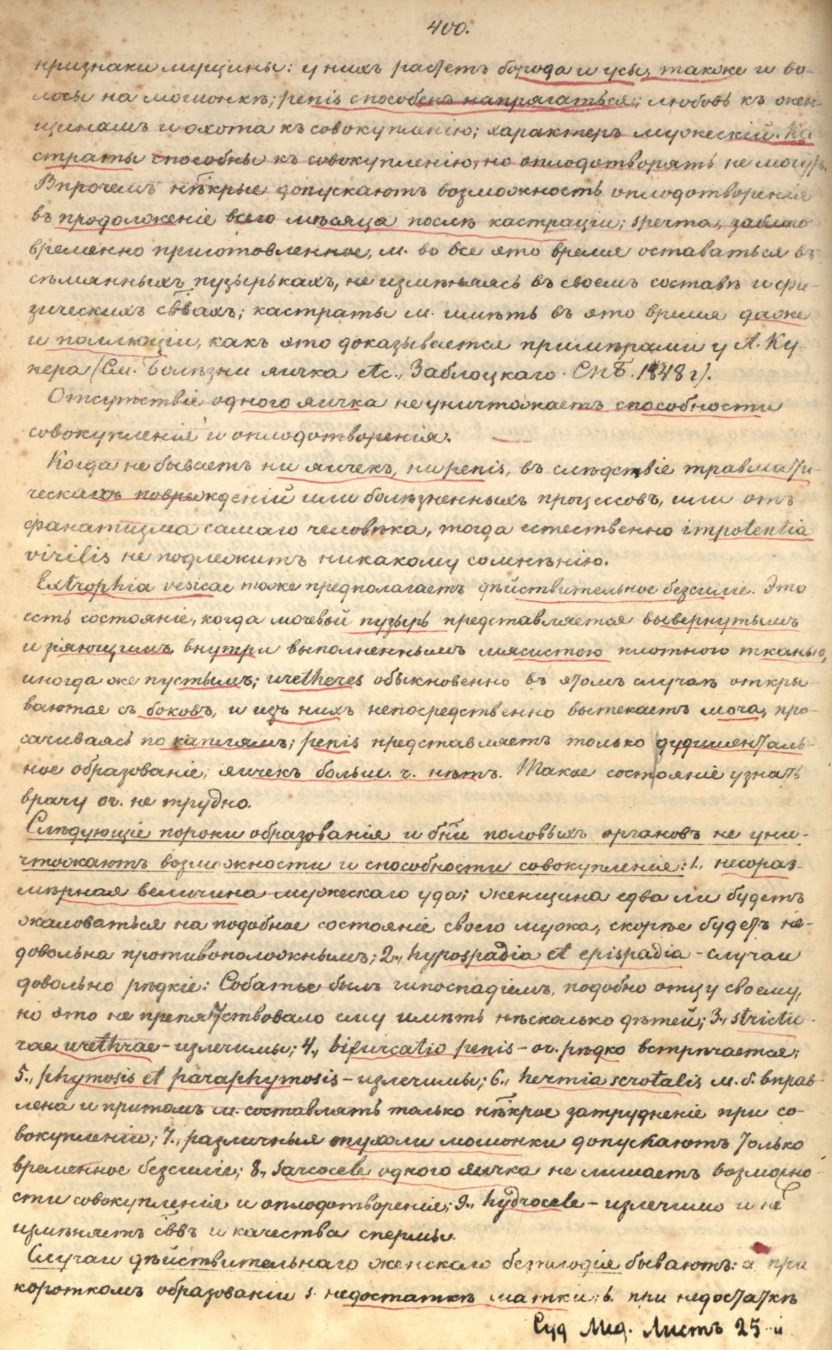 400.
признаки мущины: у нихъ растетъ борода и усы, также и во-
лосы на мошонкѣ; penis способенъ напрягаться; любовь къ жен-
щинамъ и охота къ совокупленію; характеръ мужескій. Ка-
страты способны къ совокупленію, но оплодотворять не могутъ.
Впрочемъ нѣкрые допускаютъ возможность оплодотворенія
въ продолженіе всего мѣсяца послѣ кастраціи; sperma, заблаго
временно приготовленное, м. во все это время оставаться въ
сѣмянныхъ пузырькахъ, не измѣняясь въ своемъ составѣ и фи-
зическихъ св̃вахъ; кастраты м. имѣть въ это время даже
и поллюціи, какъ это доказывается примѣрами у А. Ку-
пера (См. Болѣзни яичка etc., Заблоцкаго. СПБ. 1848 г).
Отсутствіе одного яичка не уничтожаетъ способности
совокупленія и оплодотворенія.
Когда не бываетъ ни яичекъ, ни penis, въ слѣдствіе травмати-
ческихъ поврежденій или болѣзненныхъ процессовъ, или отъ
фанатизма самаго человѣка, тогда естественно impotentia
virilis не подлежитъ никакому сомнѣнію.
Extrophia vesicae тоже предполагаетъ дѣйствительное безсиліе. Это
есть состояніе, когда мочевый пузырь представляется вывернутымъ
и зіяющимъ, внутри выполненнымъ мясистою плотного тканью,
иногда же пустымъ; uretheres обыкновенно въ этомъ случаѣ откры-
ваются съ боковъ, и изъ нихъ непосредственно вытекаетъ моча, про-
сачиваясь по каплямъ; penis представляетъ только рудименталь-
ное образованіе; яичекъ больш. ч. нѣтъ. Такое состояніе узнать
врачу оч. не трудно.
Слѣдующіе пороки образованія и бн̃и половыхъ органовъ не уни-
чтожаютъ возможности и способности совокупленія: 1., несораз-
мѣрная величина мужескаго уда; женщина едва ли будетъ
жаловаться на подобное состояніе своего мужа, скорѣе будетъ не-
довольна противоположнымъ; 2., hypospadia et epispadia – случаи
довольно рѣдкіе: Собатье былъ гипоспадіемъ, подобно отцу своему,
но это не препятствовало ему имѣть нѣсколько дѣтей; 3., strictu-
rae urethrae – излечимы; 4., bifurcatio penis – оч. рѣдко встрѣчается;
5., phymosis et paraphymosis – излечимы; 6., hernia scrotalis м. б. вправ-
лена и притомъ м. составлять только нѣкрое затрудненіе при со-
вокупленіи; 7., различныя опухоли мошонки допускаютъ только
временное безсиліе; 8., sarcocele одного яичка не лишаетъ возможно-
сти совокупленія и оплодотворенія; 9., hydrocele – излечимо и не
измѣняетъ св̃въ и качества спермы.
Случаи дѣйствительнаго женскаго безплодія бываютъ: a при
короткомъ образованіи s. недостаткѣ матки; b. при недостаткѣ
Суд Мед. Листъ 25-й